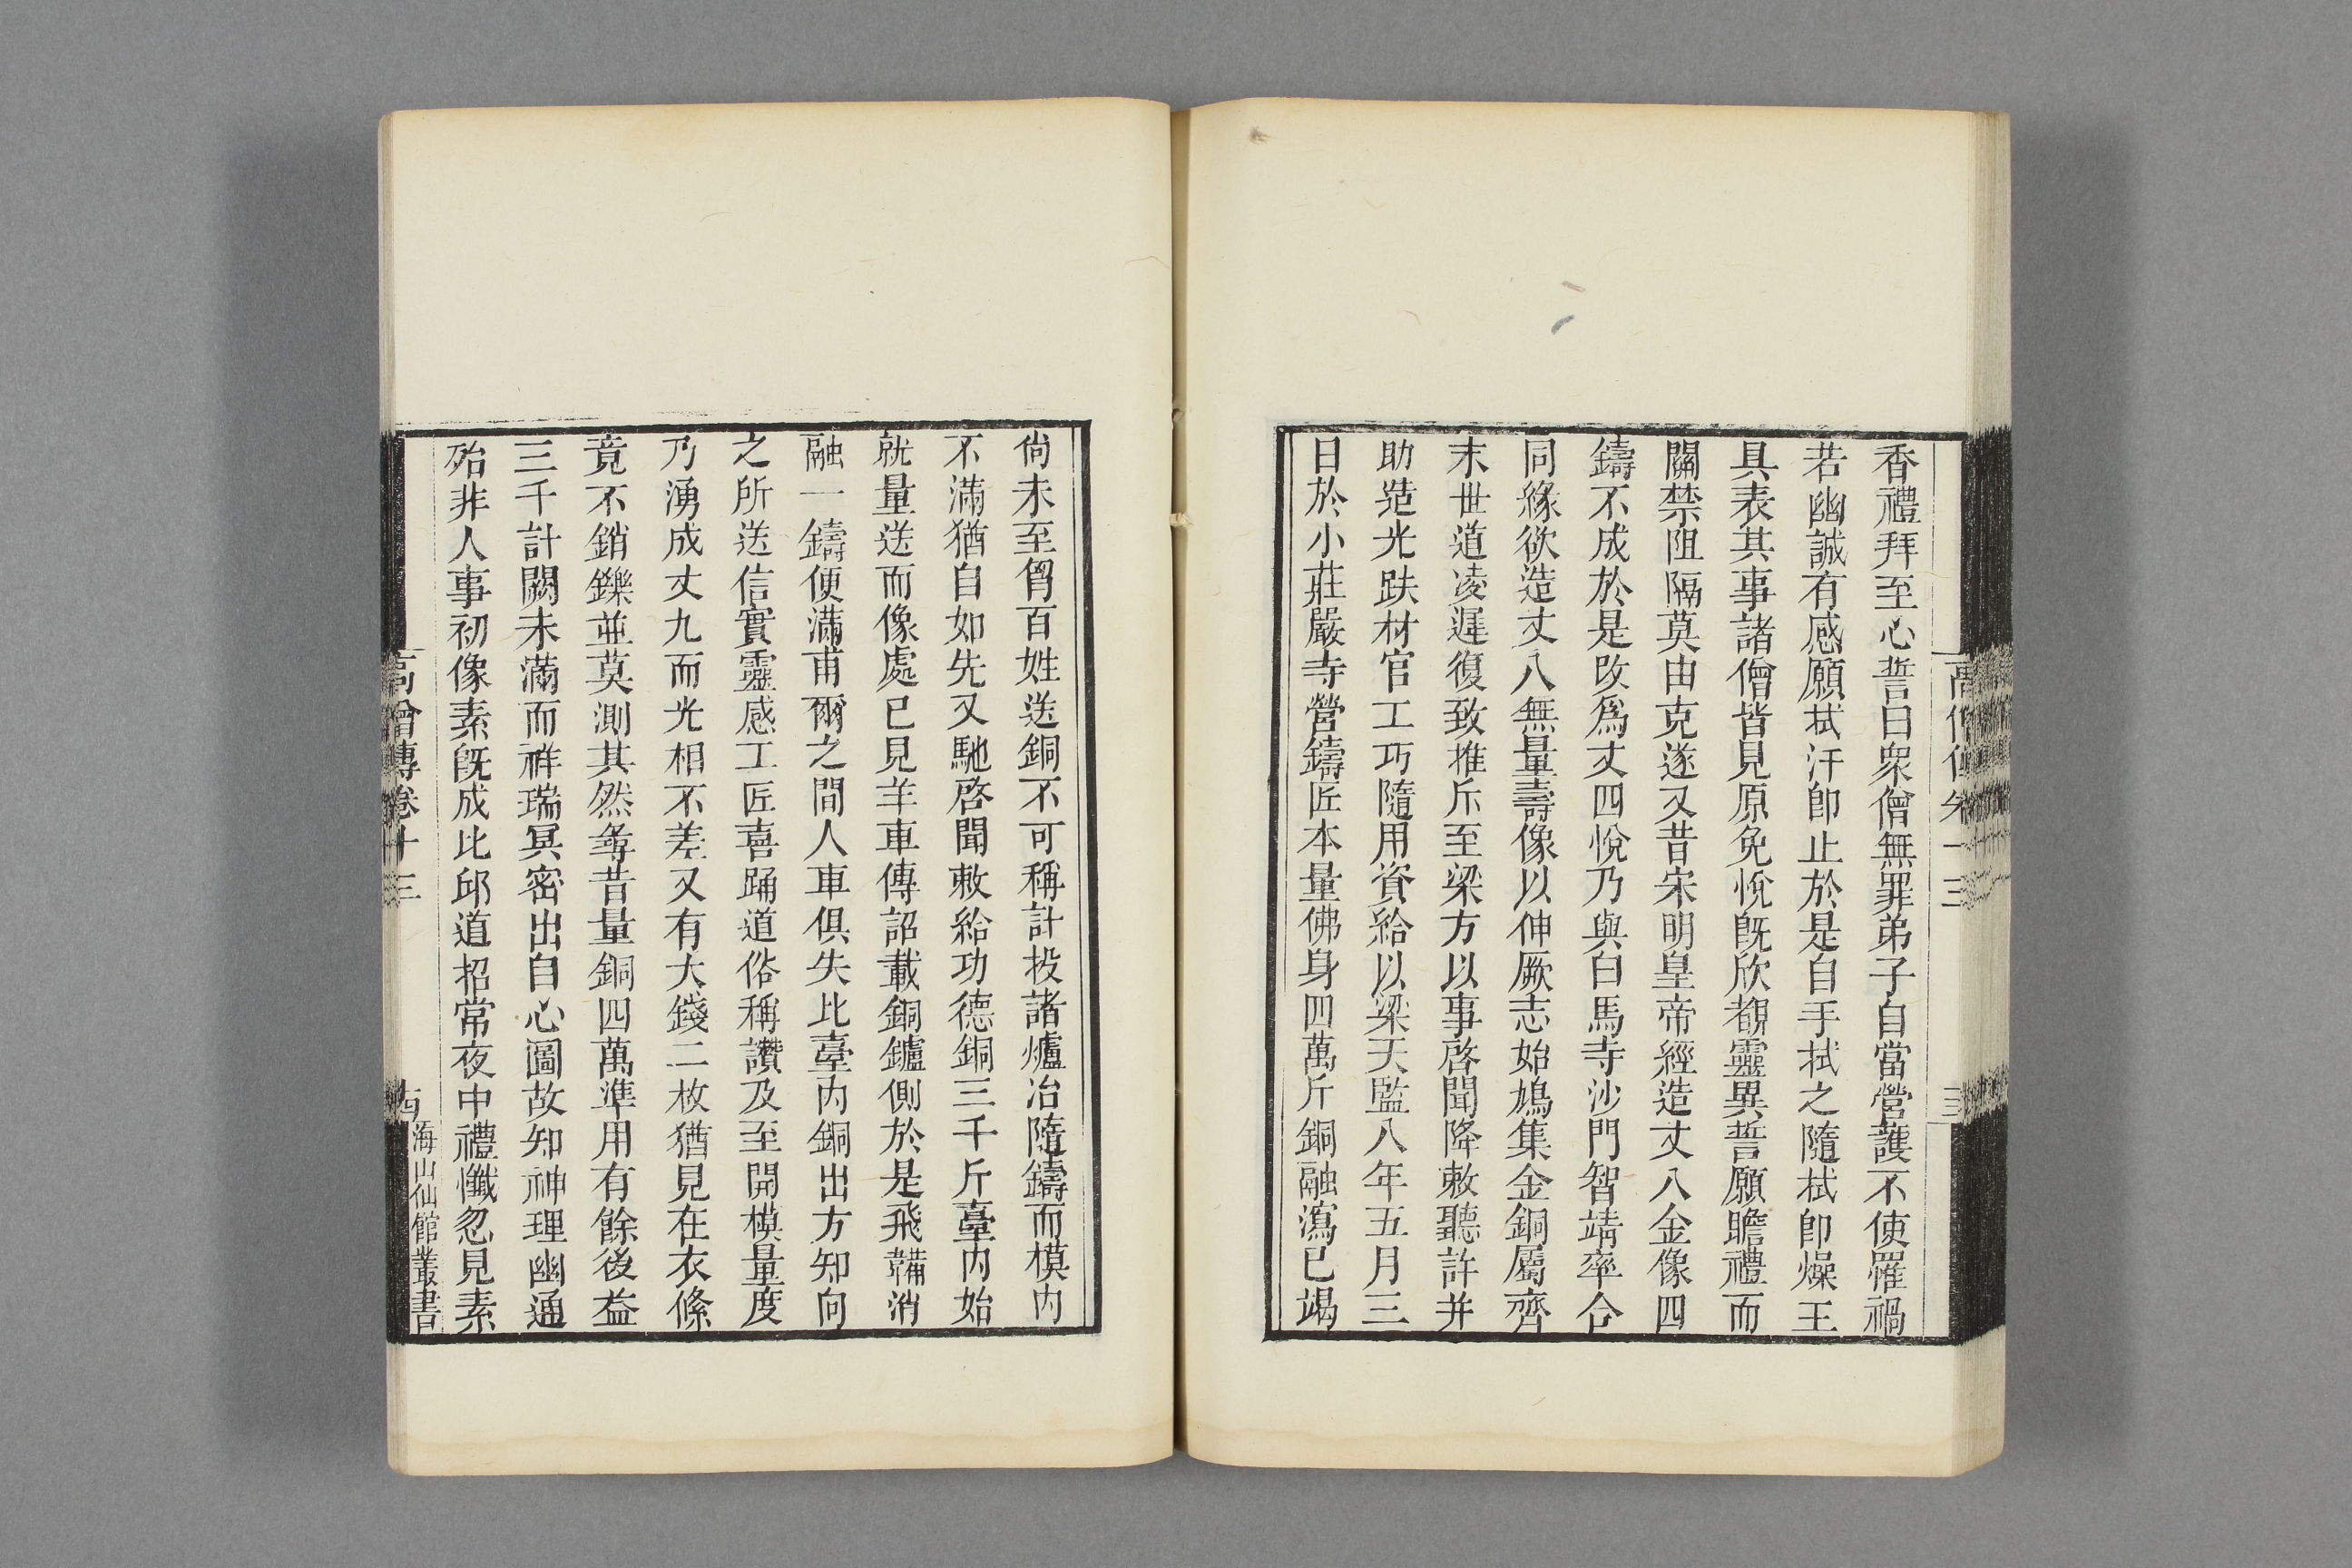 香禮拜至心誓曰衆僧無罪弟子自當營護不使罹禍
若幽誠有感願拭汗卽止於是自手拭之隨拭卽燥王
具表其事諸僧皆見原免悅旣欣覩靈異誓願瞻禮而
關禁阻隔莫由克遂又昔宋明皇帝經造丈八金像四
鑄不成於是改爲丈四悅乃與白馬寺沙門智靖率合
同緣欲造丈八無量壽像以伸厥志始鳩集金銅屬齊
末世道凌遲復致推斥至梁方以事啓聞降敕聽許并
助造光趺材官工巧隨用資給以梁天監八年五月三
日於小莊嚴寺營鑄匠本量佛身四萬斤銅融瀉已竭
尙未至胷百姓送銅不可稱計投諸爐冶隨鑄而模内
不滿猶自如先又馳啓聞敕給功德銅三千斤臺内始
就量送而像處已見羊車傳詔載銅鑪側於是飛鞴消
融一鑄便滿甫爾之間人車俱失比臺内銅出方知向
之所送信實靈感工匠喜踊道俗稱讚及至開模量度
乃湧成丈九而光相不差又有大錢二枚猶見在衣條
竟不銷鑠並莫測其然尋昔量銅四萬準用有餘後益
三千計闕未滿而祥瑞冥密出自心圖故知神理幽通
殆非人事初像素旣成比邱道招常夜中禮懺忽見素
高僧傳卷十三
古
海山仙館叢書